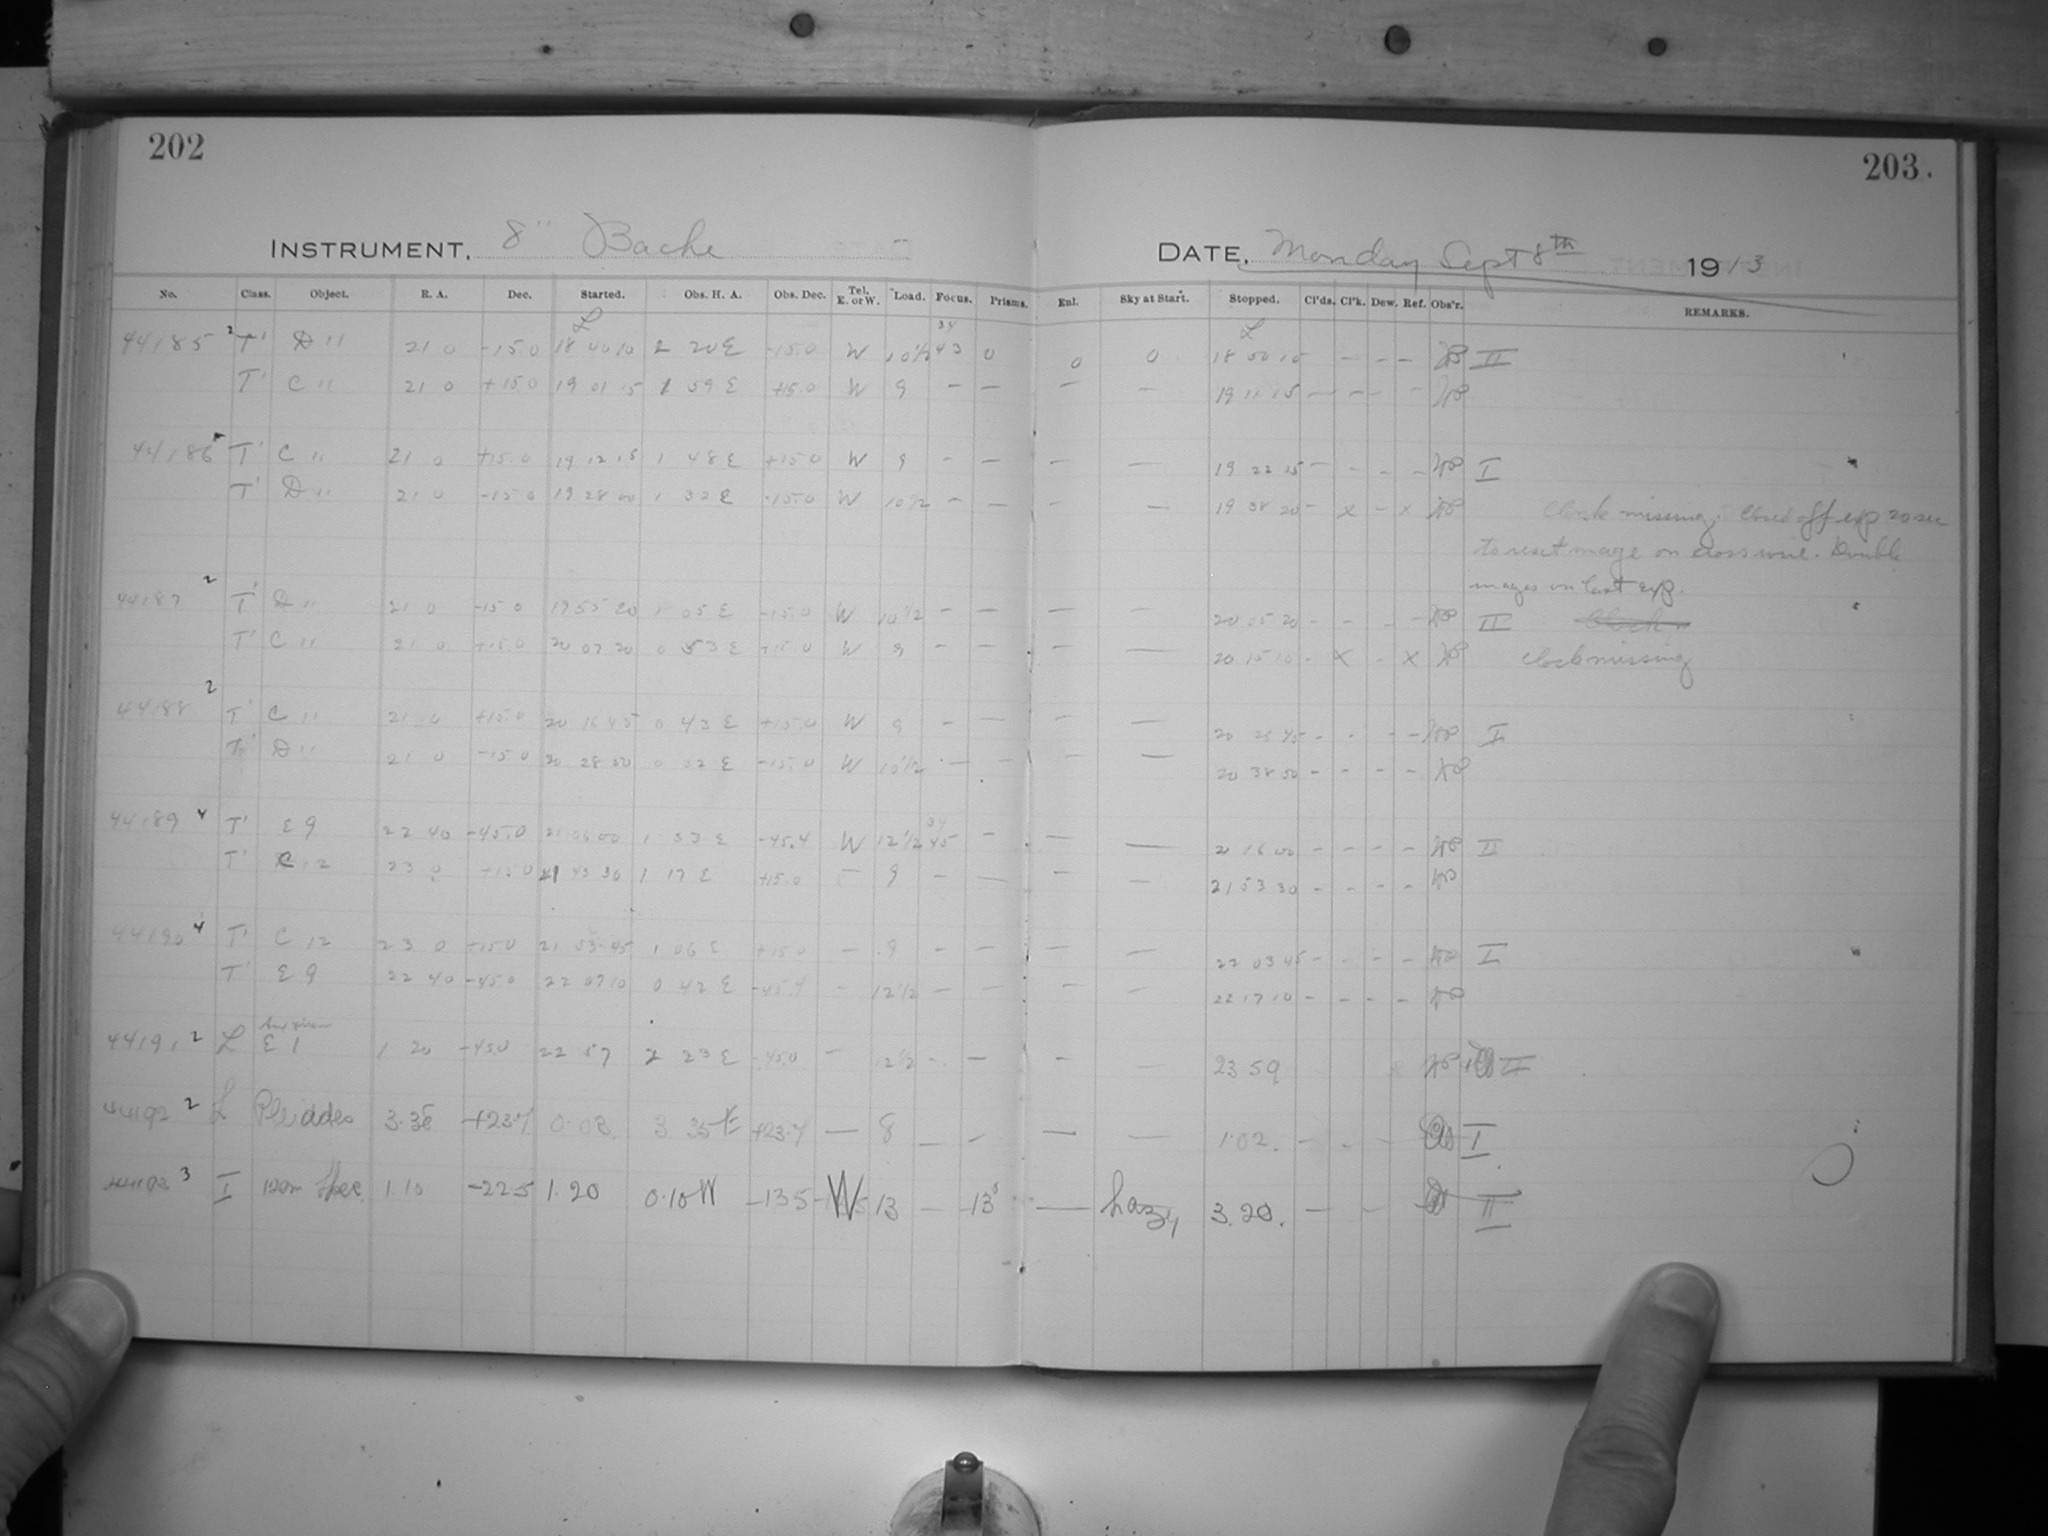 202
203.
INSTRUMENT. 8" Bache
DATE, Monday Sept 8th 1913
No. Class. Object. R. A. Dec. Started. Obs. H. A. Obs. Dec. Tel. E. or W. Load. Focus. Prisms. Enl. Sky at Start. Stopped. Cl'ds. Cl'k. Dew. Ref. Obs'r. REMARKS.
44185 2 T' D 11 21 0 -15.0 18 40 10 2 20 E -15.0 W 10 1/2 34 43 0 0 0 18 50 10 - - - II
T' C 11 21 0 +15.0 19 01 15 1 59 E +15.0 W 9 - - - - 19 11 15 - - - -
44186 T' C 11 21 0 +15.0 19 12 15 1 48 E +15.0 W 9 - - - - 19 22 15 - - - - I
T' D 11 21 0 -15.0 19 28 00 1 32 E -15.0 W 10 1/2 - - - - 19 38 20 - x - x Clock missing. Closed off exp 20 sec
to reset image on cross wire. Double
images on last exp.
44187 2 T' D 11 21 0 -15.0 19 55 20 1 05 E -15.0 W 10 1/2 - - - - 20 05 20 - - - - II Clock
T' C 11 21 0 +15.0 20 07 20 0 53 E +15.0 W 9 - - - - 20 15 10 - x - x Clock missing
44188 2 T' C 11 21 0 +15.0 20 16 45 0 43 E +15.0 W 9 - - - - 20 26 45 - - - - I
T' D 11 21 0 -15.0 20 28 50 0 32 E -15.0 W 10 1/2 - - - - 20 38 50 - - - -
44189 4 T' E 9 22 40 -45.0 21 06 00 1 33 E -45.4 W 12 1/2 34 45 - - - 21 16 00 - - - - II
T' C 12 23 0 +15.0 21 43 30 1 17 E +15.0 - 9 - - - - 21 53 30 - - - -
44190 4 T' C 12 23 0 +15.0 21 53 45 1 06 E +15.0 - 9 - - - - 22 03 45 - - - - I
T' E 9 22 40 -45.0 22 07 10 0 42 E -45.4 - 12 1/2 - - - - 22 17 10 - - - -
44191 2 L E 1 1 20 -45.0 22 57 2 23 E -45.0 - 12 1/2 - - - - 23 59 II
44192 2 L Pleiades 3.38 +23.7 0.02 3 35 E +23.7 - 8 - - - - 1.02. - - - I
44193 3 I 1.10 -22.5 1.20 0.10 W -13.5 W 13 - -13.5 - hazy 3.20. - - - II